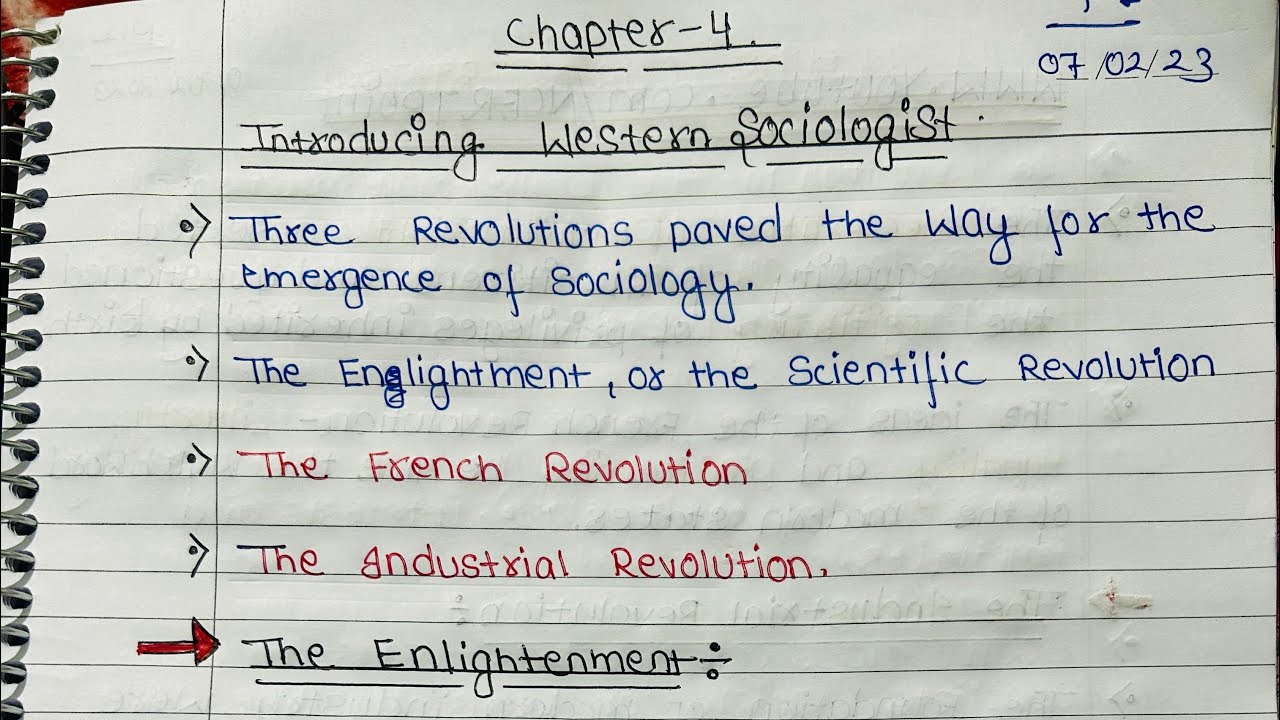 Chapter-4.
07/02/23
Introducing Western Sociologist.
Three Revolutions paved the way for the
emergence of sociology.
The Englightment, or the Scientific Revolution
The French Revolution
The Industrial Revolution.
The Enlightenment÷